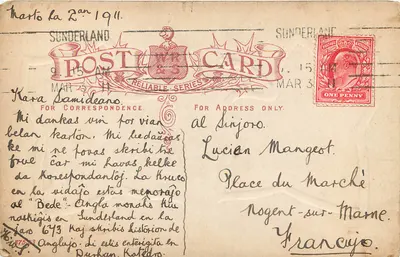 Marto la 2an 1911.
SUNDERLAND
9.15 AM
MAR 3 11
SUNDERLAND
9.15 AM
MAR 3 11
POST CARD
WR & S
RELIABLE SERIES
POSTAGE
ONE PENNY
FOR CORRESPONDENCE.
FOR ADDRESS ONLY.
Kara Samideano.
Mi dankas vin por vian
belan karton. Mi bedaŭras
ke mi ne povas skribi tre
frue ĉar mi havas kelke
da Korespondantoj. La Kruco
en la vidaĵo estas memoraĵo
al "Bede" Angla monaĥo kiu
naskiĝis en Sunderland en la
jaro 673 Kaj skribis historion de
Anglujo. Li estas enterigita en
Durham Katedro.
al Sinjoro.
Lucien Mangeot.
Place du Marché
Nogent-sur-Marne.
Francujo.